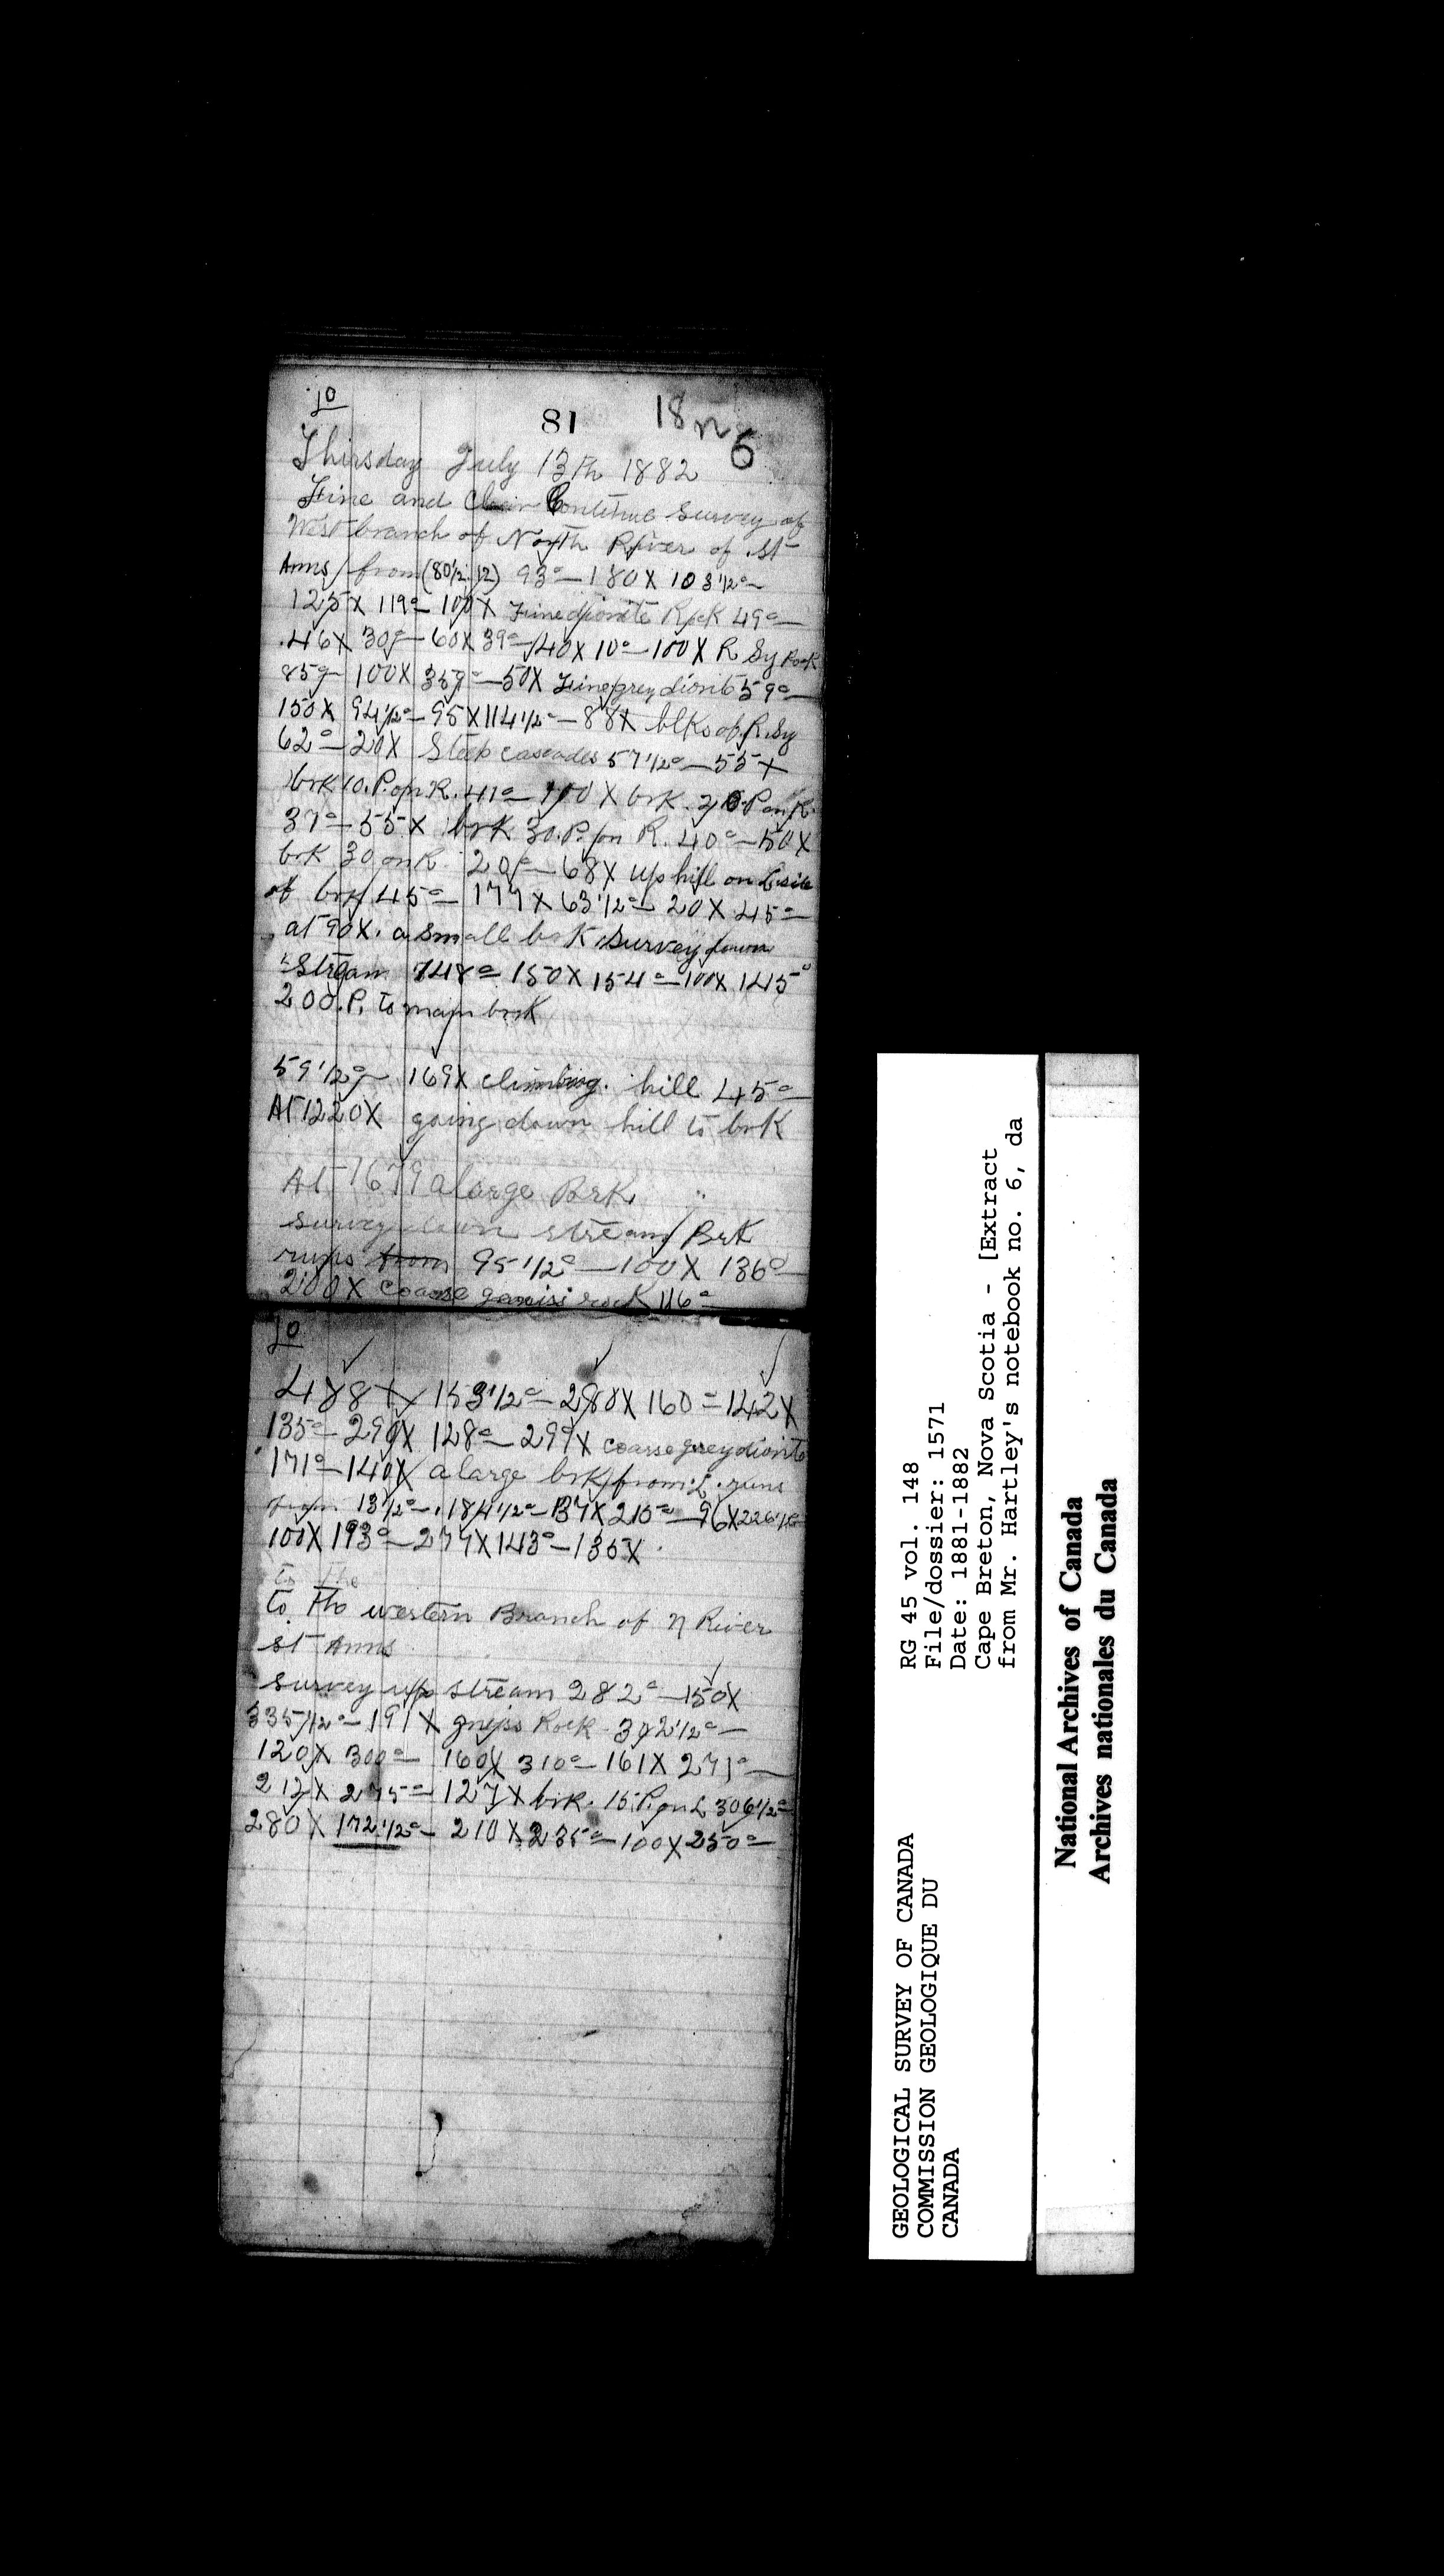 10
81
18 n 6
Thirsday July 13th 1882
Fine and Clear Contitue Survey of
West branch of North River of St
Anns from (80½.12) 93°-180X 103½°-
125X 119°-100X Fine diorite Rock 49°-
46X 30°-60X 39°-40X 10°-100X R Sy Rock
85°-100X 35°-50X Fine grey diorit 59°-
150X 94½°-95X 114½°-88X blks of R. Sy
62°-20X Steep cascades 57½°-55X
brk 10.P. on R. 41°-100X brk. 20.P on R.
37°-55X brk 30.P. on R. 40°-50X
brk 30 on R. 20°-68X up hill on L side
of brk 45°-177X 63½°-20X 45°-
at 90X. a small brk Survey down
Stream 148°-150X 154°-100X 145°
200.P. to main brk
59½°- 169X climbing. hill 45°-
At 1220X going down hill to brk
At 1679 a large Brk.
survey down stream Brk
runs from 95½°-100X 136°-
200X coarse gneiss rock 116°-
10
488X 153½°-280X 160°-142X
135°-290X 128°-299X coarse grey diorite
171°-140X a large brk from L. runs
from 13½°-184½°-137X 215°-96X 226½°
100X 193°-277X 143°-135X.
to The
to. The western Branch of N River
St Anns
survey up stream 282°-150X
335½°-191X gneiss Rock 302½°-
120X 300°-160X 310°-161X 271°-
217X 275°-127X brk. 15.P. on L 306½°
280X 172½°-210X 235°-100X 250°-
RG 45 vol. 148
File/dossier: 1571
Date: 1881-1882
Cape Breton, Nova Scotia - [Extract
from Mr. Hartley's notebook no. 6, da
GEOLOGICAL SURVEY OF CANADA
COMMISSION GEOLOGIQUE DU
CANADA
National Archives of Canada
Archives nationales du Canada